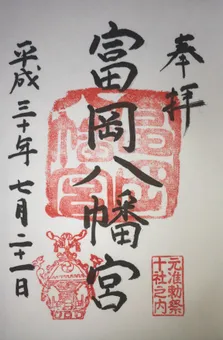 奉拝
元准勅祭
十社之内
富岡八幡宮
富岡
八幡宮
平成三十年七月二十一日